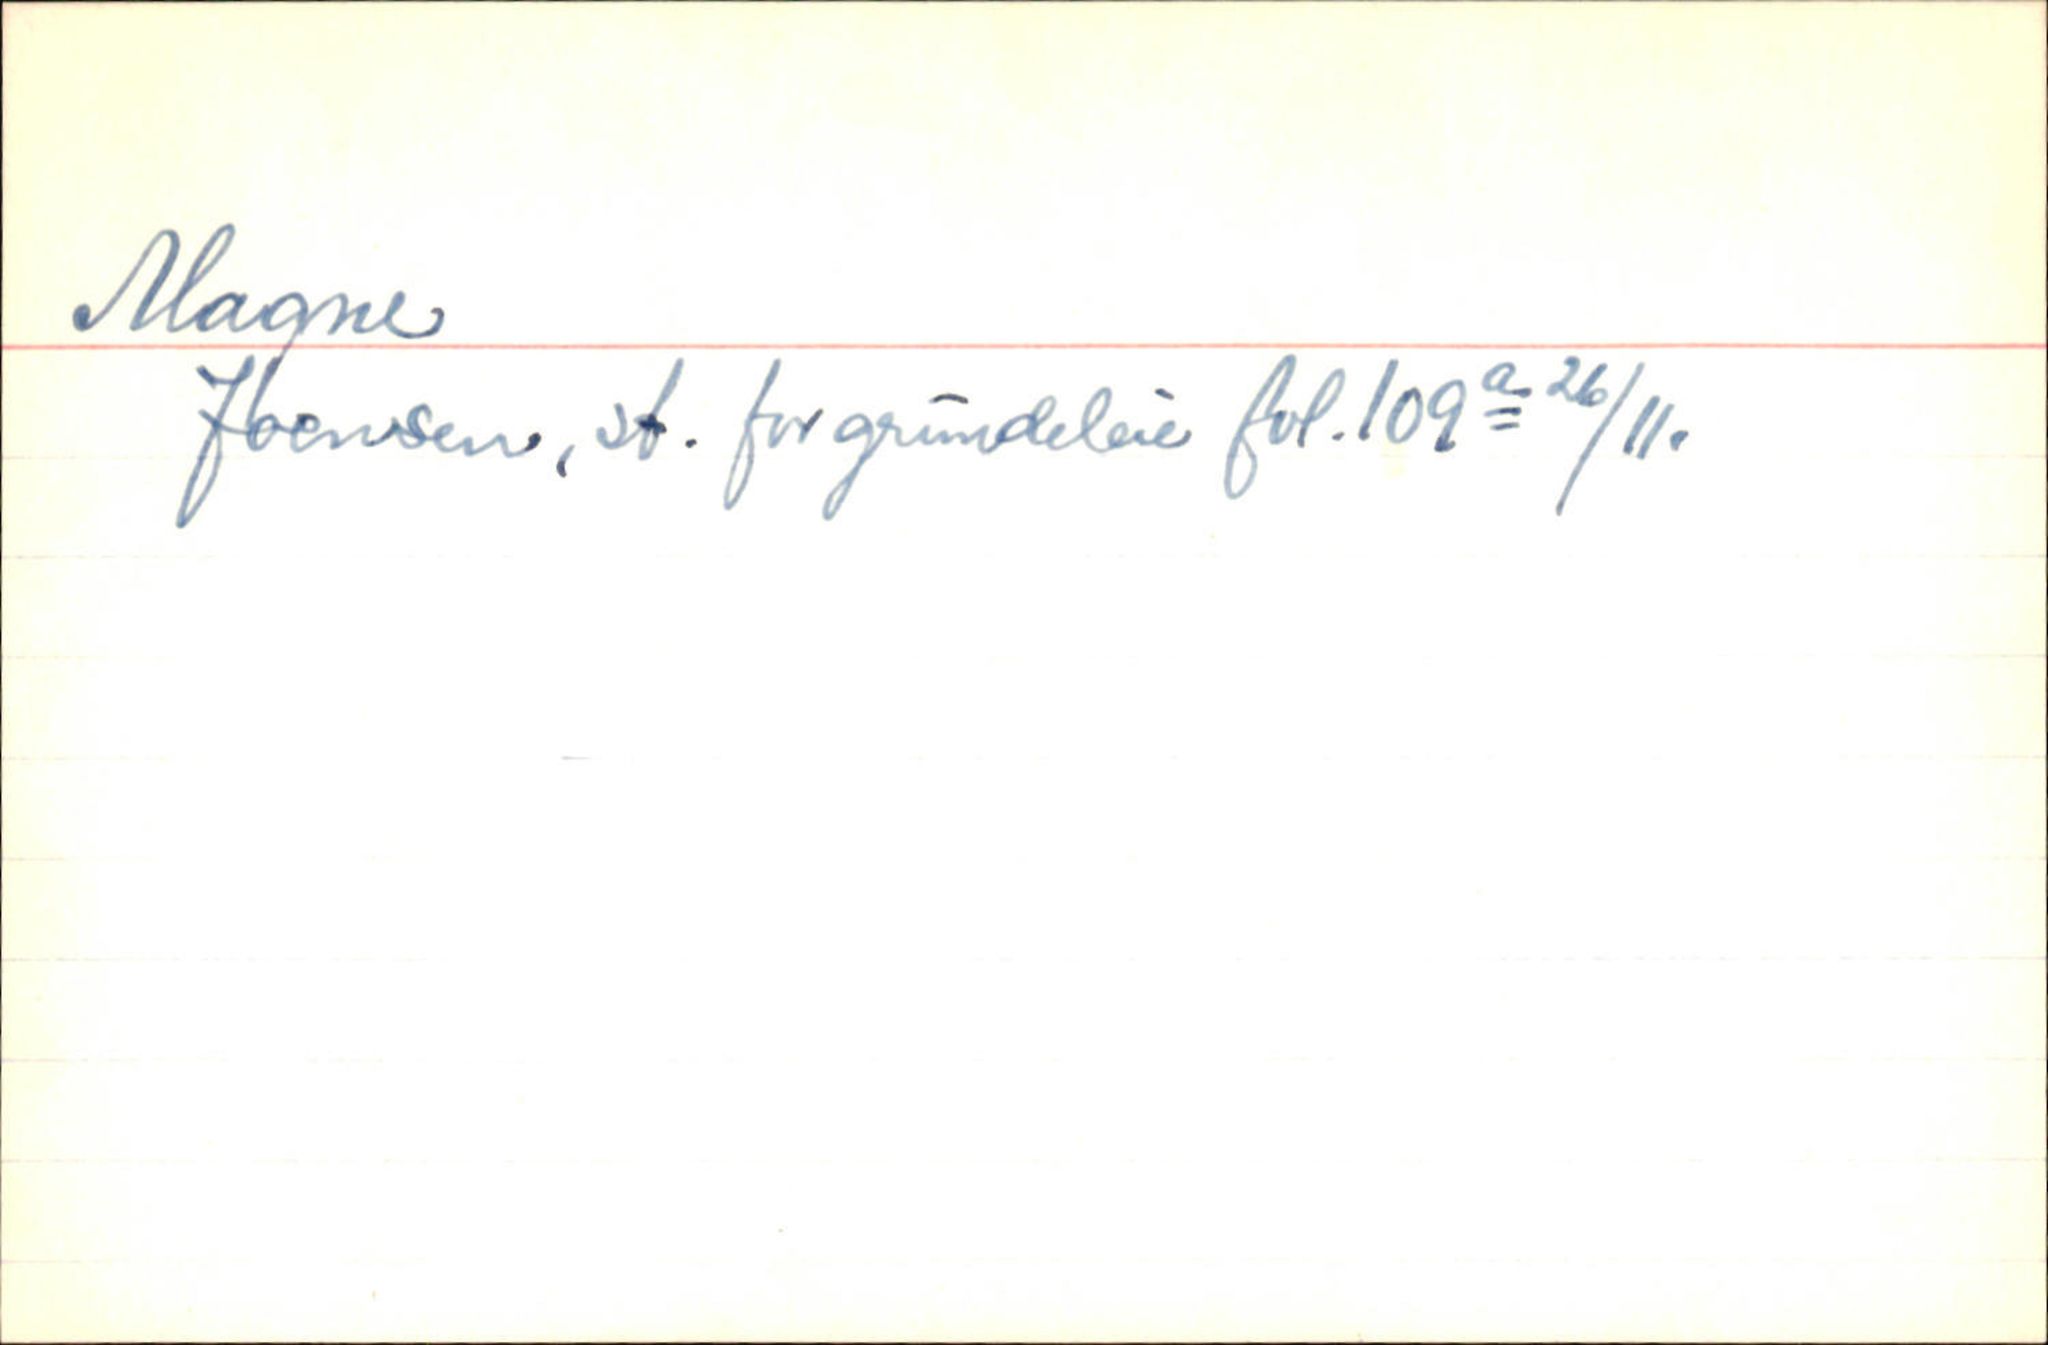 Magne
Ibensen, st. for grundeleie fol. 109ª 26/11.